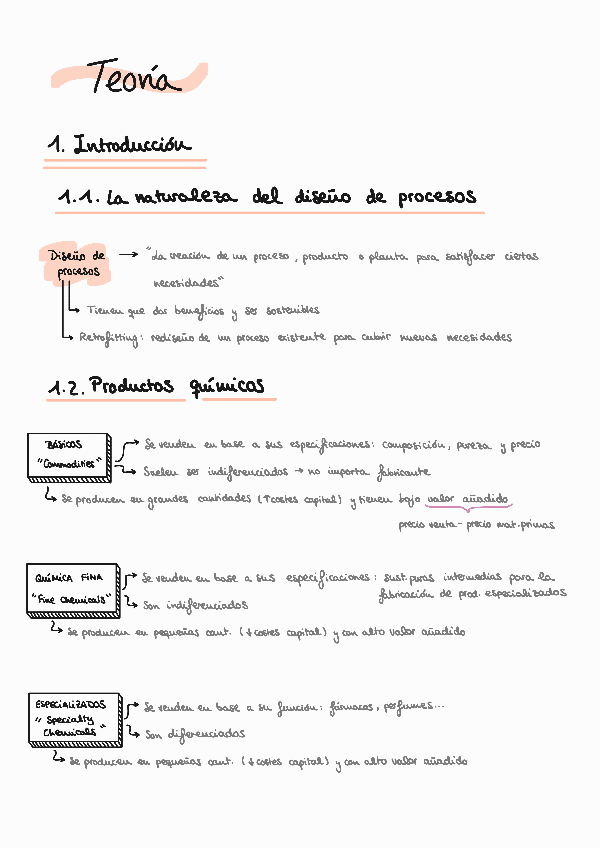 Teoría
1. Introducción
1.1. La naturaleza del diseño de procesos
Diseño de procesos → "La creación de un proceso, producto o planta para satisfacer ciertas
necesidades"
Tienen que dar beneficios y ser sostenibles
Retrofitting: rediseño de un proceso existente para cubrir nuevas necesidades
1.2. Productos químicos
BÁSICOS
"Commodities"
Se venden en base a sus especificaciones: composición, pureza y precio
Suelen ser indiferenciados → no importa fabricante
Se producen en grandes cantidades (↑costes capital) y tienen bajo valor añadido
precio venta - precio mat.primas
QUÍMICA FINA
"Fine Chemicals"
Se venden en base a sus especificaciones: sust.puras intermedias para la
fabricación de prod. especializados
Son indiferenciados
Se producen en pequeñas cant. (↓costes capital) y con alto valor añadido
ESPECIALIZADOS
"Specialty
Chemicals"
Se venden en base a su función: fármacos, perfumes...
Son diferenciados
Se producen en pequeñas cant. (↓costes capital) y con alto valor añadido